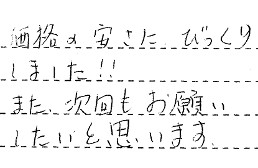 価格の安さに びっくり
しました!!
また、次回もお願い
したいと思います。